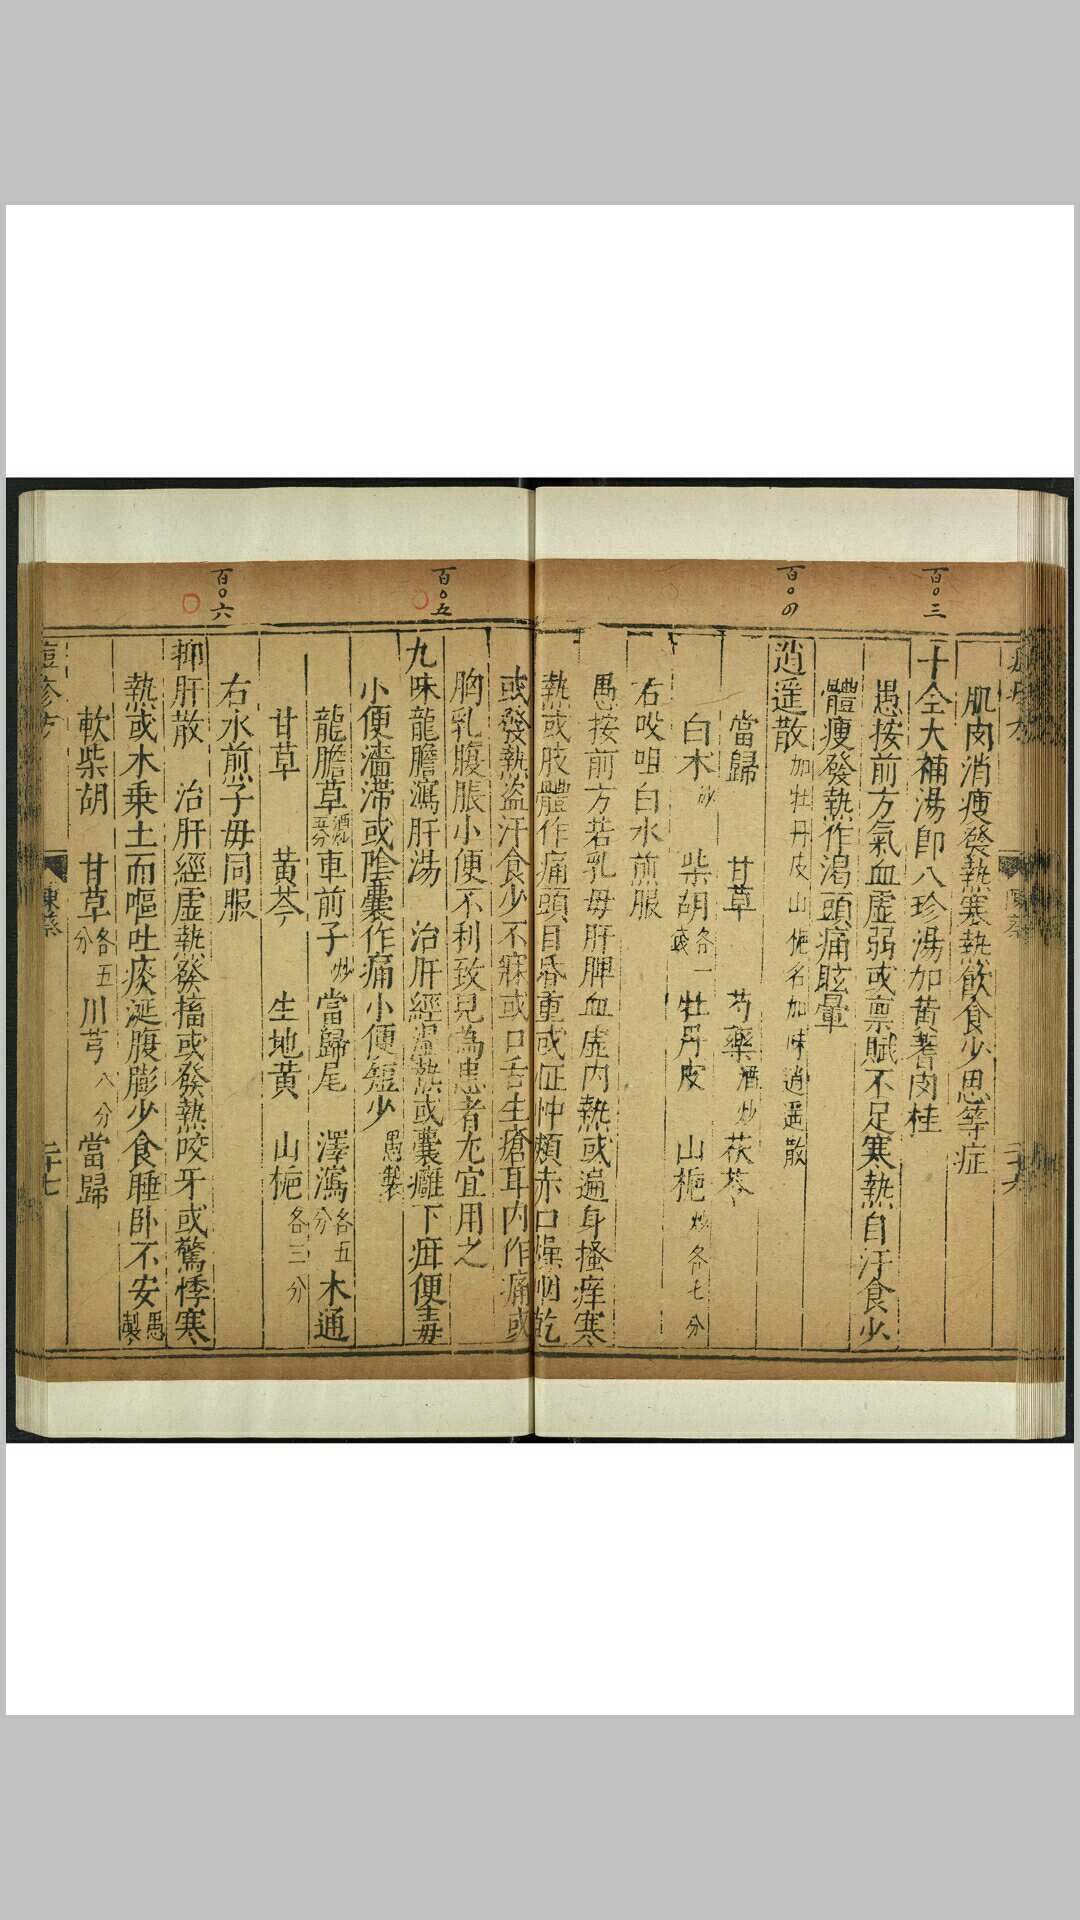 百〇三
百〇四
肌肉消瘦發熱寒熱飲食少思等症
十全大補湯即八珍湯加黃蓍肉桂
愚按前方氣血虛弱或禀賦不足寒熱自汗食少
體瘦發熱作渴頭痛眩暈
逍遥散加牡丹皮山梔名加味逍遥散
當歸 甘草 芍藥酒炒 茯苓
白朮炒 柴胡各一錢 牡丹皮 山梔炒各七分
右㕮咀白水煎服
愚按前方若乳母肝脾血虛内熱或遍身搔痒寒
熱或肢體作痛頭目昏重或怔忡頰赤口燥咽乾
百〇五
百〇六
或發熱盗汗食少不寐或口舌生瘡耳内作痛或
胸乳腹脹小便不利致兒為患者尤宜用之
九味龍膽瀉肝湯 治肝經濕熱或囊癰下疳便毒
小便濇滯或陰囊作痛小便短少 愚製
龍膽草酒炒五分 車前子炒 當歸尾 澤瀉各五分 木通
甘草 黃芩 生地黃 山梔各三分
右水煎子母同服
抑肝散 治肝經虛熱發搐或發熱咬牙或驚悸寒
熱或木乗土而嘔吐痰涎腹膨少食睡卧不安愚製
軟柴胡 甘草各五分 川芎八分 當歸
二十七